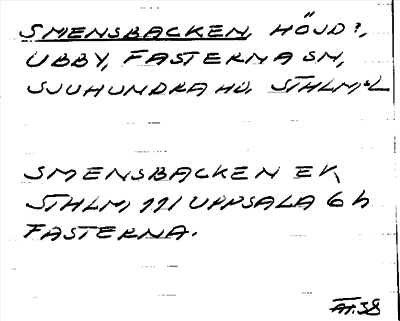 SMENSBACKEN, HÖJD?,
UBBY, FASTERNA SN,
SJUHUNDRA HD, STHLMS L
SMENSBACKEN EK,
STHLM 111 UPPSALA 6 h
FASTERNA.